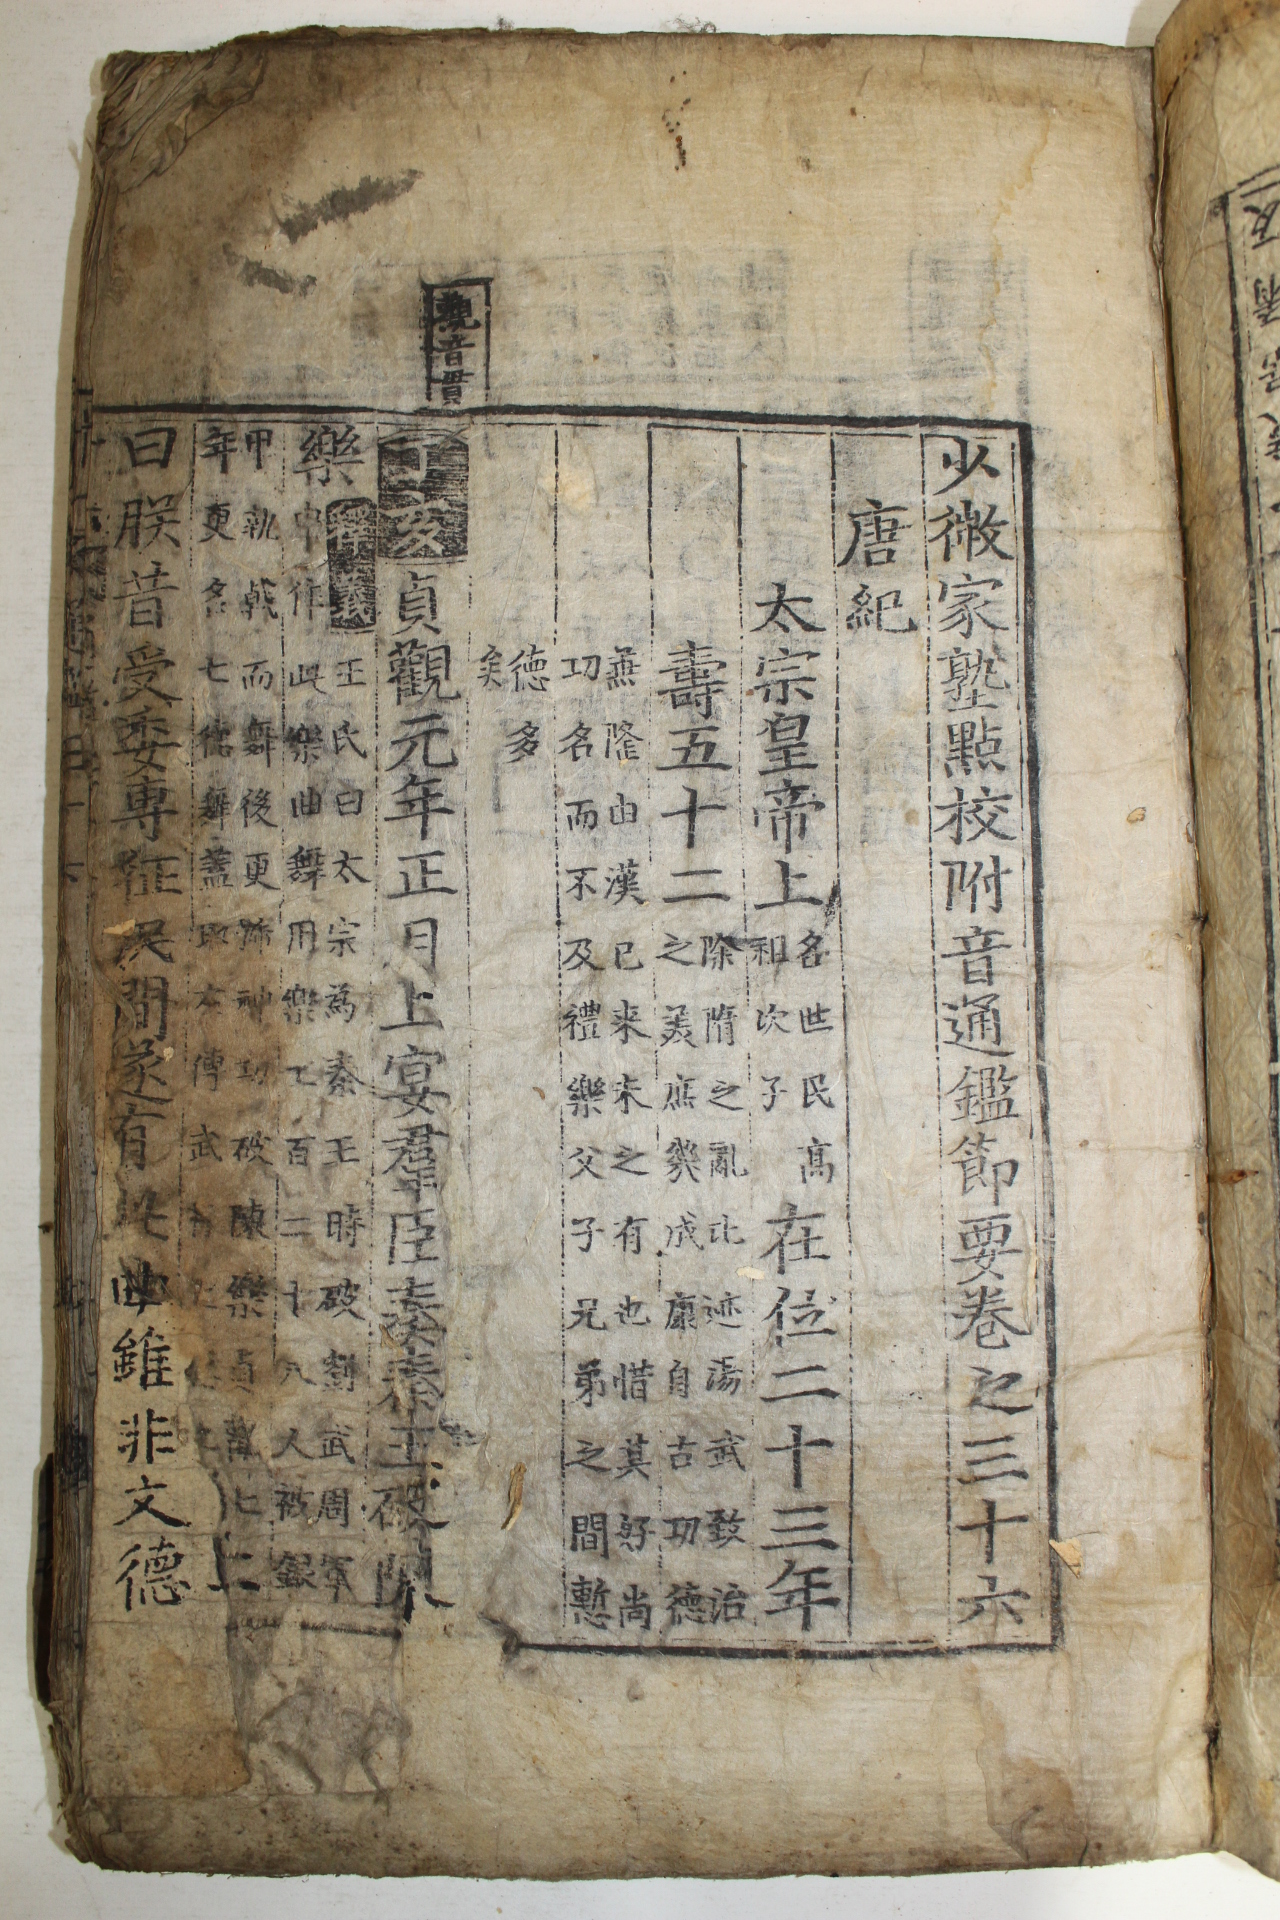 少微家塾點校附音通鑑節要卷之三十六
唐紀
太宗皇帝上 名世民高祖次子 在位二十三年
壽五十二 除隋之亂比迹湯武致治之美庶幾成康自古功德
兼隆由漢已来未之有也惜其好尚功名而不及禮樂父子兄弟之間慙
德多矣
觀音貫
丁亥 貞觀元年正月上宴羣臣奏秦王破陳
樂 釋義 王氏曰太宗為秦王時破劉武周軍中作此樂曲舞用樂工百二十八人被銀
甲執戟而舞後更飾神功破陳樂貞觀七年更名七德舞蓋取左傳武有
曰朕昔受委專征民間遂有此曲雖非文德